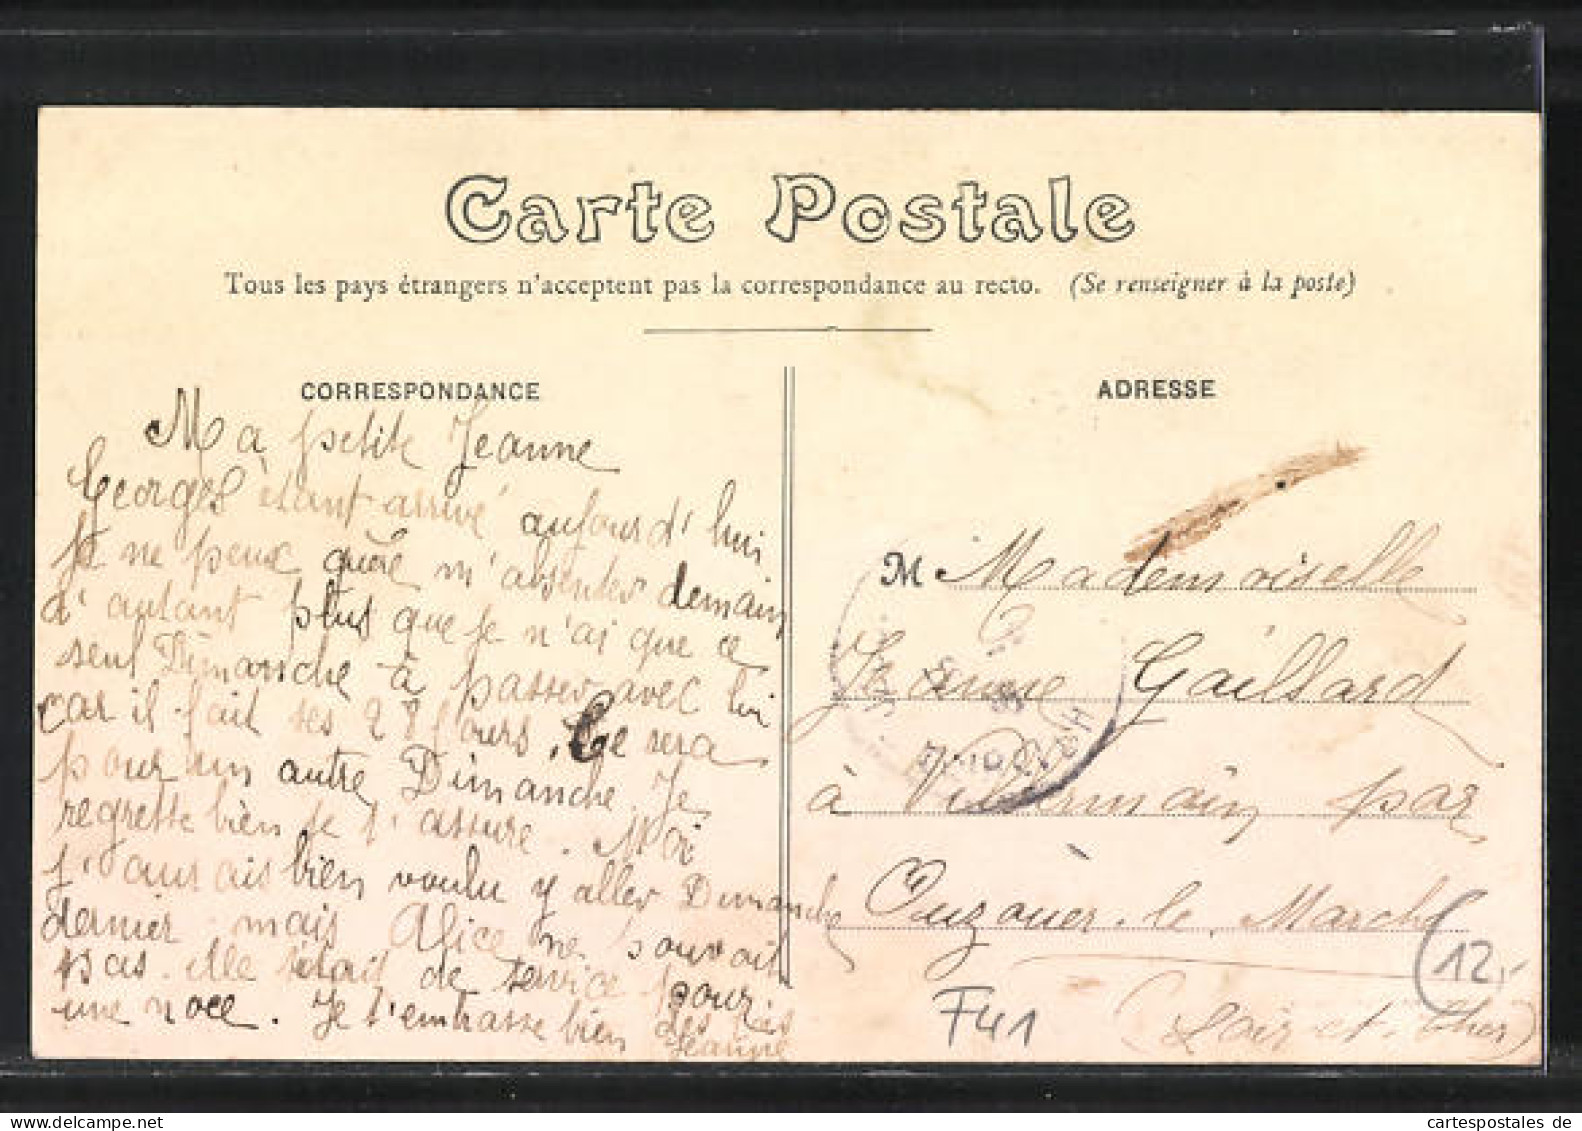 Carte Postale
Tous les pays étrangers n'acceptent pas la correspondance au recto. (Se renseigner à la poste)
CORRESPONDANCE
Ma petite Jeanne
Georges étant arrivé aujourd'hui
Je ne peux guère m'absenter demain
d'autant plus que je n'ai que ce
seul Dimanche à passer avec lui
car il fait ses 28 jours. Ce sera
pour un autre Dimanche. Je
regrette bien je t'assure. Moi
j'aurais bien voulu y aller Dimanche
dernier mais Alice ne pouvait
pas. elle était de service pour
une noce. Je t'embrasse bien des fois
Jeanne
ADRESSE
M Mademoiselle
Jeanne Gaillard
à Villermain par
Ouzouer-le-Marché
(Loir-et-Cher)
12,-
F41
cartespostales de